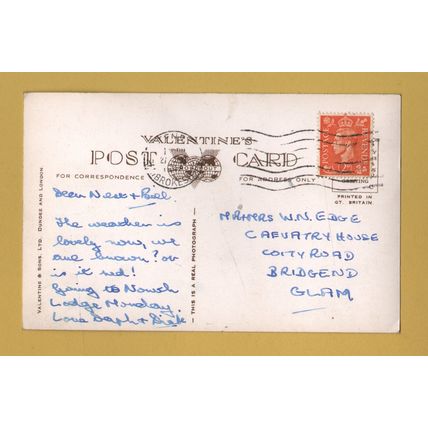 VALENTINE'S
POST CARD
FOR CORRESPONDENCE
FOR ADDRESS ONLY
PRINTED IN
GT. BRITAIN
VALENTINE & SONS, LTD. DUNDEE AND LONDON.
— THIS IS A REAL PHOTOGRAPH —
POSTAGE
Dear
The weather is
lovely now, we
are brown? or
is it red!
Going to
Lodge Monday.
Love
W.N. EDGE
HOUSE
COITY ROAD
BRIDGEND
GLAM